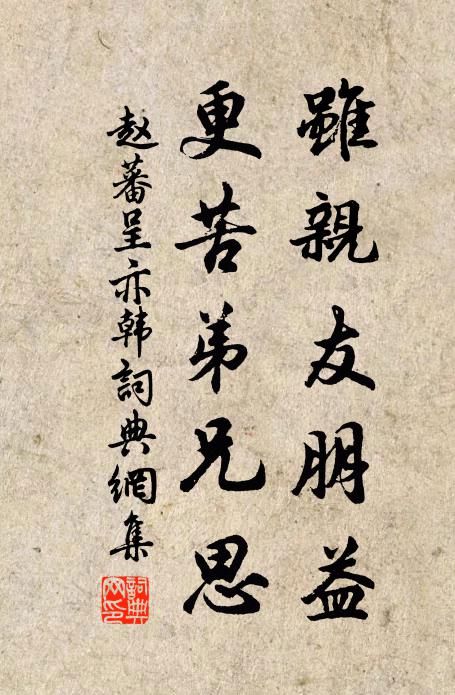 雖親友朋益
更苦弟兄思
赵蕃呈亦韩詞典網集
詞典网印